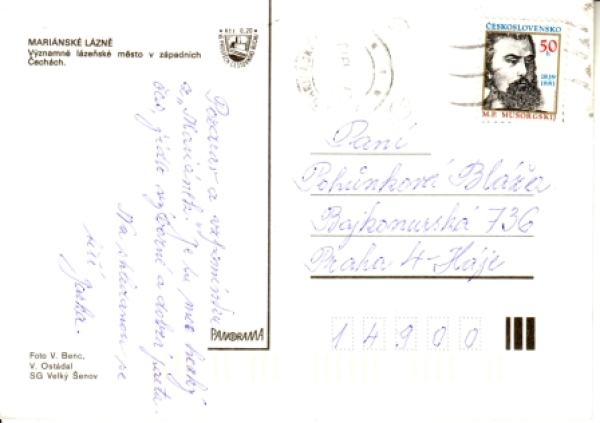 MARIÁNSKÉ LÁZNĚ
Významné lázeňské město v západních
Čechách.
Kčs 0,20
Pozdrav a vzpomínku
z „Mariánek". Je tu moc hezky
jídlo výborné a dobrá parta.
Na shledanou se
těší Jarka.
PANORAMA
Foto V. Benc,
V. Ostádal
SG Velký Šenov
ČESKOSLOVENSKO
50 h
1839
1881
M.P. MUSORGSKIJ
Paní
Pohůnková Blaža
Bajkonurská 736
Praha 4-Háje
14900